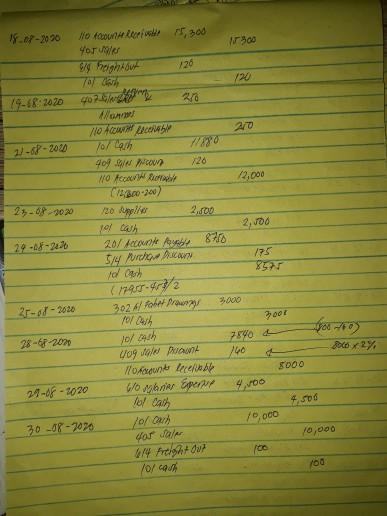 18-08-2020 110 Accounts Receivable 15,300
405 Sales 15300
614 Freight Out 120
101 Cash 120
19-08-2020 407 Sales Return & 250
Allowances
110 Accounts Receivable 250
21-08-2020 101 Cash 11880
409 Sales Discount 120
110 Accounts Receivable 12,000
23-08-2020 120 Supplies 2,500
101 Cash 2,500
24-08-2020 201 Accounts Payable 8750
514 Purchase Discount 175
101 Cash 8575
25-08-2020 302 Drawings 3000
101 Cash 3000
28-08-2020 101 Cash 7840
409 Sales Discount 160 8000 x 2%
110 Accounts Receivable 8000
29-08-2020 610 Salaries Expense 4,500
101 Cash 4,500
30-08-2020 101 Cash 10,000
405 Sales 10,000
614 Freight Out 100
101 Cash 100